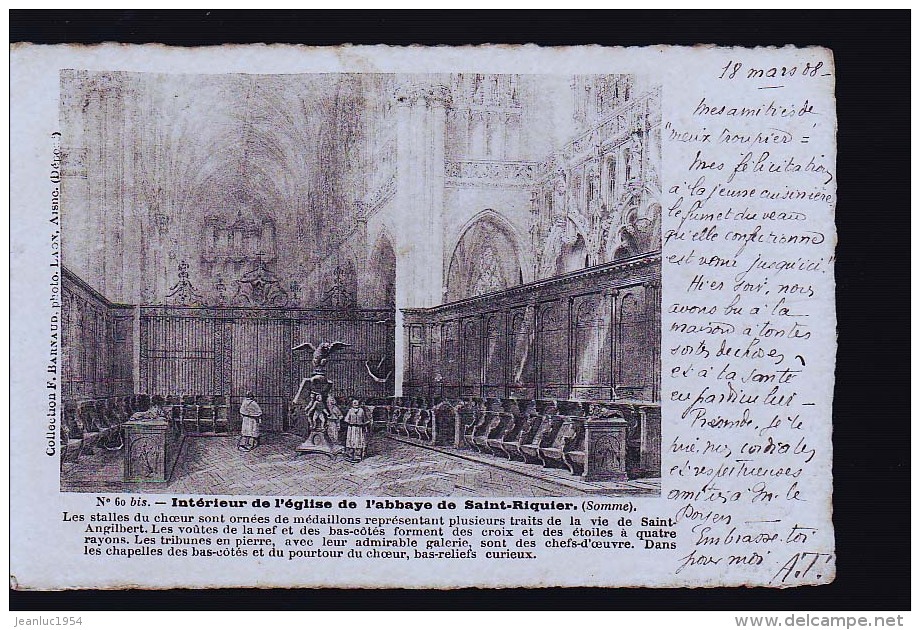 18 mars 08 -
Mes amitiés de
"vieux troupier" =
Mes félicitations
à la jeune cuisinière
le fumet du veau
qu'elle confectionne
est venu jusqu'ici!
Hier soir, nous
avons bu à la
maison à toutes
sortes de choses
et à la santé
en particulier
Présente, je te
prie, mes cordiales
et respectueuses
amitiés à M. le
Doyen
Embrasse-toi
pour moi A.T.
Collection F. BARNAUD, photo. LAON, Aisne. (Dépo
No 60 bis. — Intérieur de l'église de l'abbaye de Saint-Riquier. (Somme).
Les stalles du chœur sont ornées de médaillons représentant plusieurs traits de la vie de Saint-
Angilbert. Les voûtes de la nef et des bas-côtés forment des croix et des étoiles à quatre
rayons. Les tribunes en pierre, avec leur admirable galerie, sont des chefs-d'œuvre. Dans
les chapelles des bas-côtés et du pourtour du chœur, bas-reliefs curieux.
jeanluc1954
www.delcampe.net